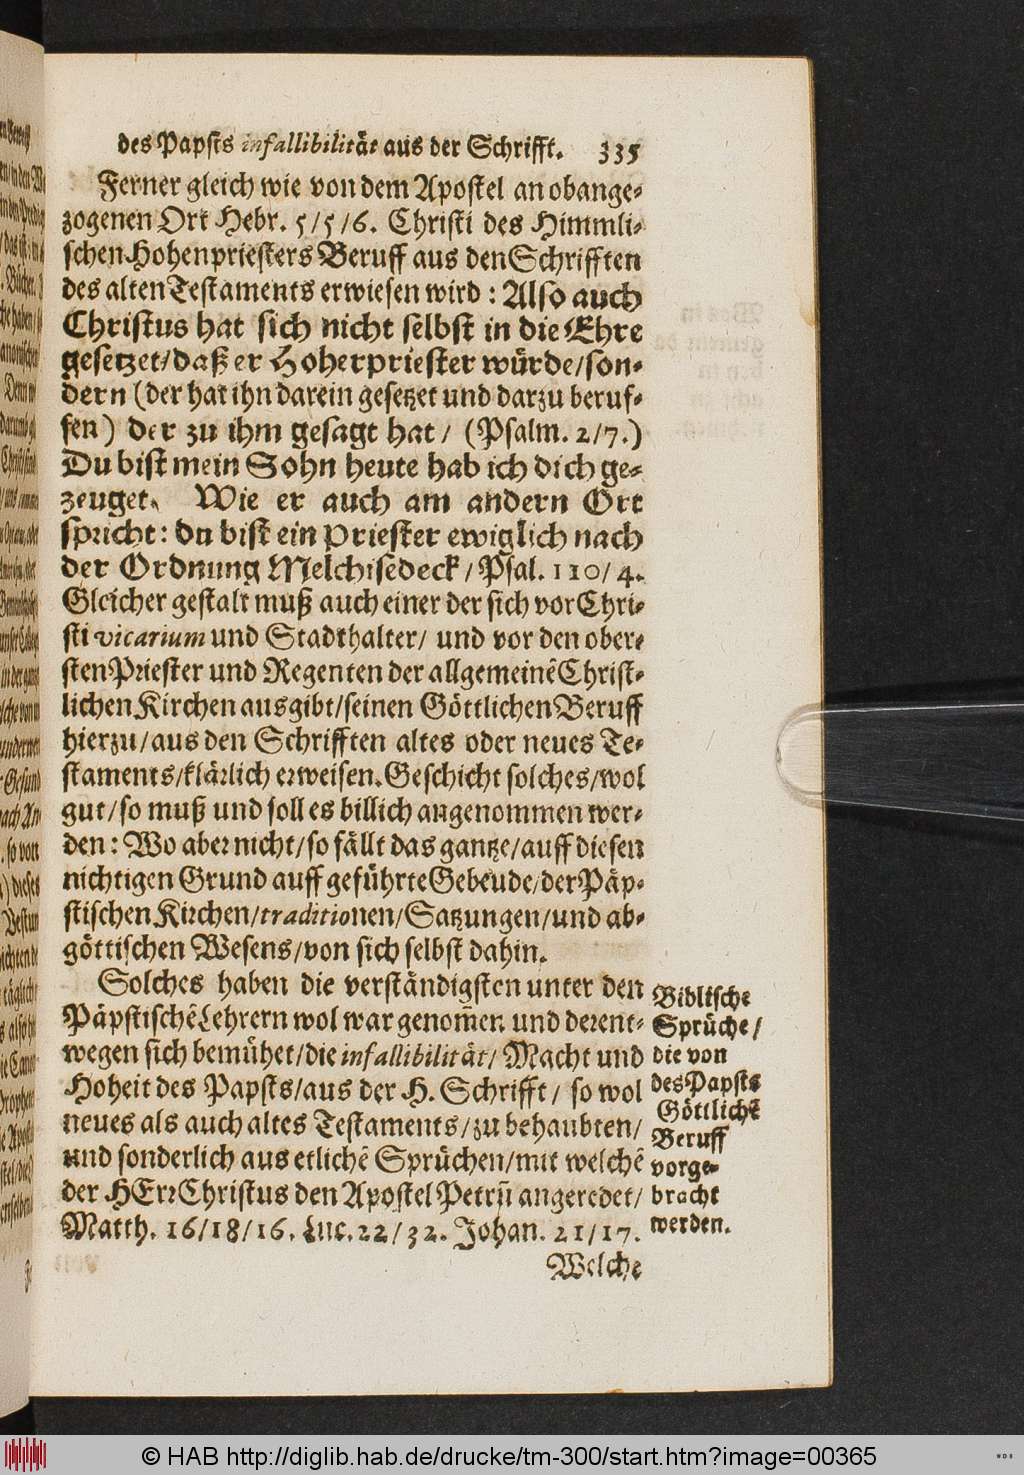 des Papsts infallibilität aus der Schrifft. 335
Ferner gleich wie von dem Apostel an obange-
zogenen Ort Hebr. 5/5/6. Christi des Himmli-
schen Hohenpriesters Beruff aus den Schrifften
des alten Testaments erwiesen wird : Also auch
Christus hat sich nicht selbst in die Ehre
gesetzet/daß er Hoherpriester würde/son-
dern (der hat ihn darein gesetzet und darzu beruf-
fen) der zu ihm gesagt hat/ (Psalm. 2/7.)
Du bist mein Sohn heute hab ich dich ge-
zeuget. Wie er auch am andern Ort
spricht: du bist ein Priester ewiglich nach
der Ordnung Melchisedeck/Psal. 110/4.
Gleicher gestalt muß auch einer der sich vor Chri-
sti vicarium und Stadthalter/ und vor den ober-
sten Priester und Regenten der allgemeinē Christ-
lichen Kirchen ausgibt/seinen Göttlichen Beruff
hierzu/aus den Schrifften altes oder neues Te-
staments/klärlich erweisen. Geschicht solches/wol
gut/so muß und soll es billich angenommen wer-
den: Wo aber nicht/so fällt das gantze/auff diesen
nichtigen Grund auff geführte Gebeude/der Päp-
stischen Kirchen/traditionen/Satzungen/und ab-
göttischen Wesens/von sich selbst dahin.
Solches haben die verständigsten unter den
Päpstischē Lehrern wol war genom̄en und derent-
wegen sich bemühet/die infallibilität/ Macht und
Hoheit des Papsts/aus der H. Schrifft/ so wol
neues als auch altes Testaments/zu behaubten/
und sonderlich aus etlichē Sprüchen/mit welchē
der HErr Christus den Apostel Petrū angeredet/
Matth. 16/18/16. Luc. 22/32. Johan. 21/17.
Welche
Biblische
Sprüche/
die von
des Papsts
Göttlichē
Beruff
vorge-
bracht
werden.
© HAB http://diglib.hab.de/drucke/tm-300/start.htm?image=00365